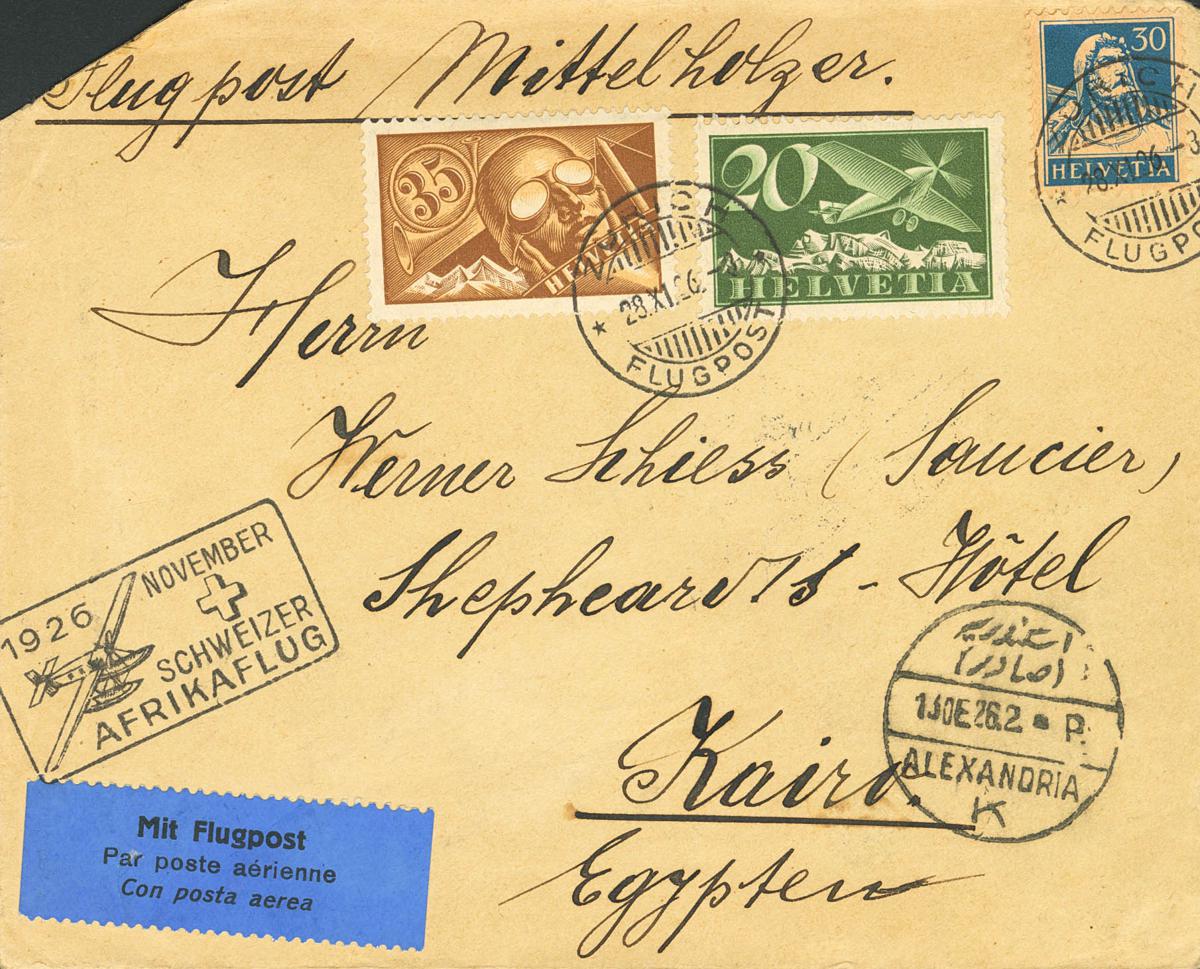 Flugpost Mittelholzer.
30
HELVETIA
ZÜRICH
28.XI.26.-3
FLUGPOST
35
HELVETIA
20
HELVETIA
ZÜRICH
28.XI.26.-3
FLUGPOST
Herrn
Werner Schiess (Saucier)
Shepheard's-Hôtel
Kairo.
Egypten
1926
NOVEMBER
SCHWEIZER
AFRIKAFLUG
اسكندرية
(صادر)
13DE26.2 P.
ALEXANDRIA
K
Mit Flugpost
Par poste aérienne
Con posta aerea